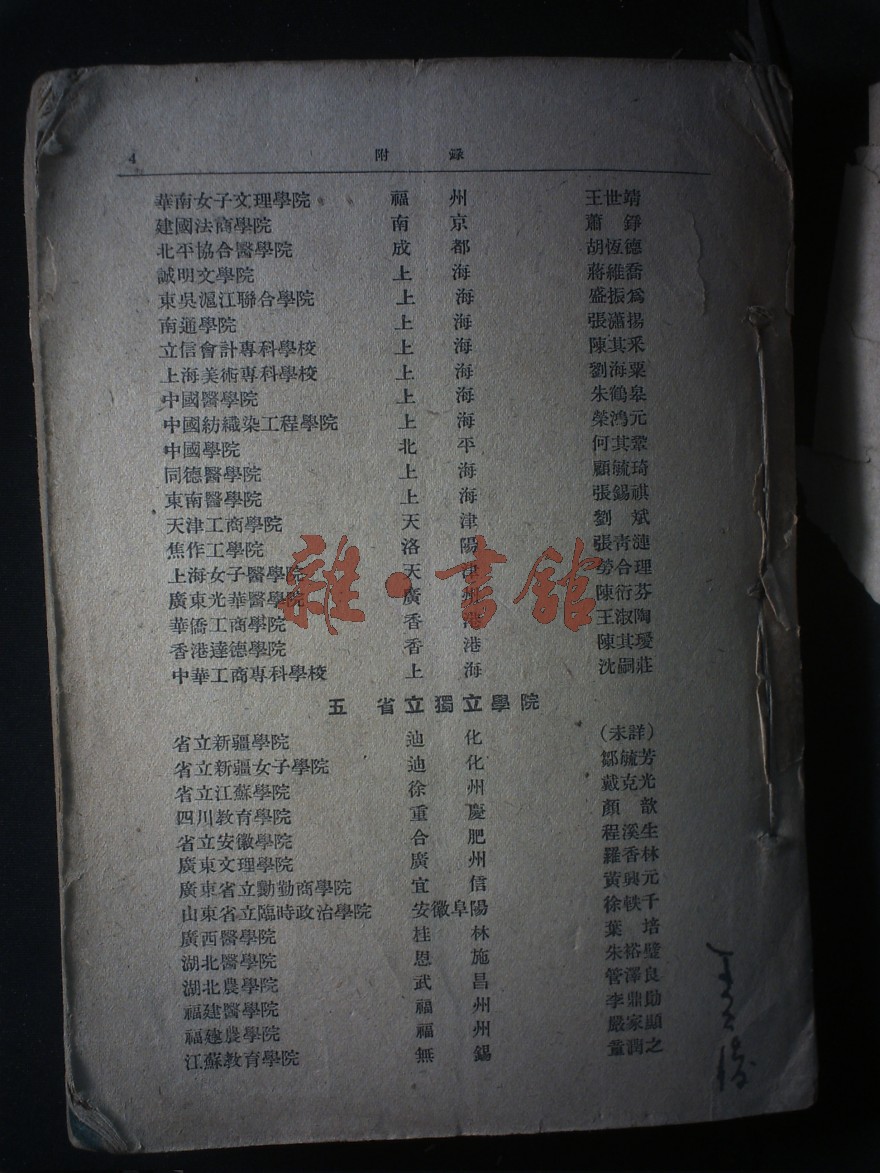 4 附錄
華南女子文理學院 福州 王世靖
建國法商學院 南京 蕭錚
北平協合醫學院 成都 胡恆德
誠明文學院 上海 蔣維喬
東吳滬江聯合學院 上海 盛振為
南通學院 上海 張瀟揚
立信會計專科學校 上海 陳其采
上海美術專科學校 上海 劉海粟
中國醫學院 上海 朱鶴皋
中國紡織染工程學院 上海 榮鴻元
中國學院 北平 何其鞏
同德醫學院 上海 顧毓琦
東南醫學院 上海 張錫祺
天津工商學院 天津 劉斌
焦作工學院 洛陽 張靑漣
上海女子醫學院 天津 勞合理
廣東光華醫學院 廣州 陳衍芬
華僑工商學院 香港 王淑陶
香港達德學院 香港 陳其瑗
中華工商專科學校 上海 沈嗣莊
五 省立獨立學院
省立新疆學院 迪化 (未詳)
省立新疆女子學院 迪化 鄒毓芳
省立江蘇學院 徐州 戴克光
四川教育學院 重慶 顏歆
省立安徽學院 合肥 程溪生
廣東文理學院 廣州 羅香林
廣東省立勷勤商學院 宜信 黃興元
山東省立臨時政治學院 安徽阜陽 徐軼千
廣西醫學院 桂林 葉培
湖北醫學院 恩施 朱裕璧
湖北農學院 武昌 管澤良
福建醫學院 福州 李鼎勛
福建農學院 福州 嚴家顯
江蘇教育學院 無錫 童潤之
雜·書館